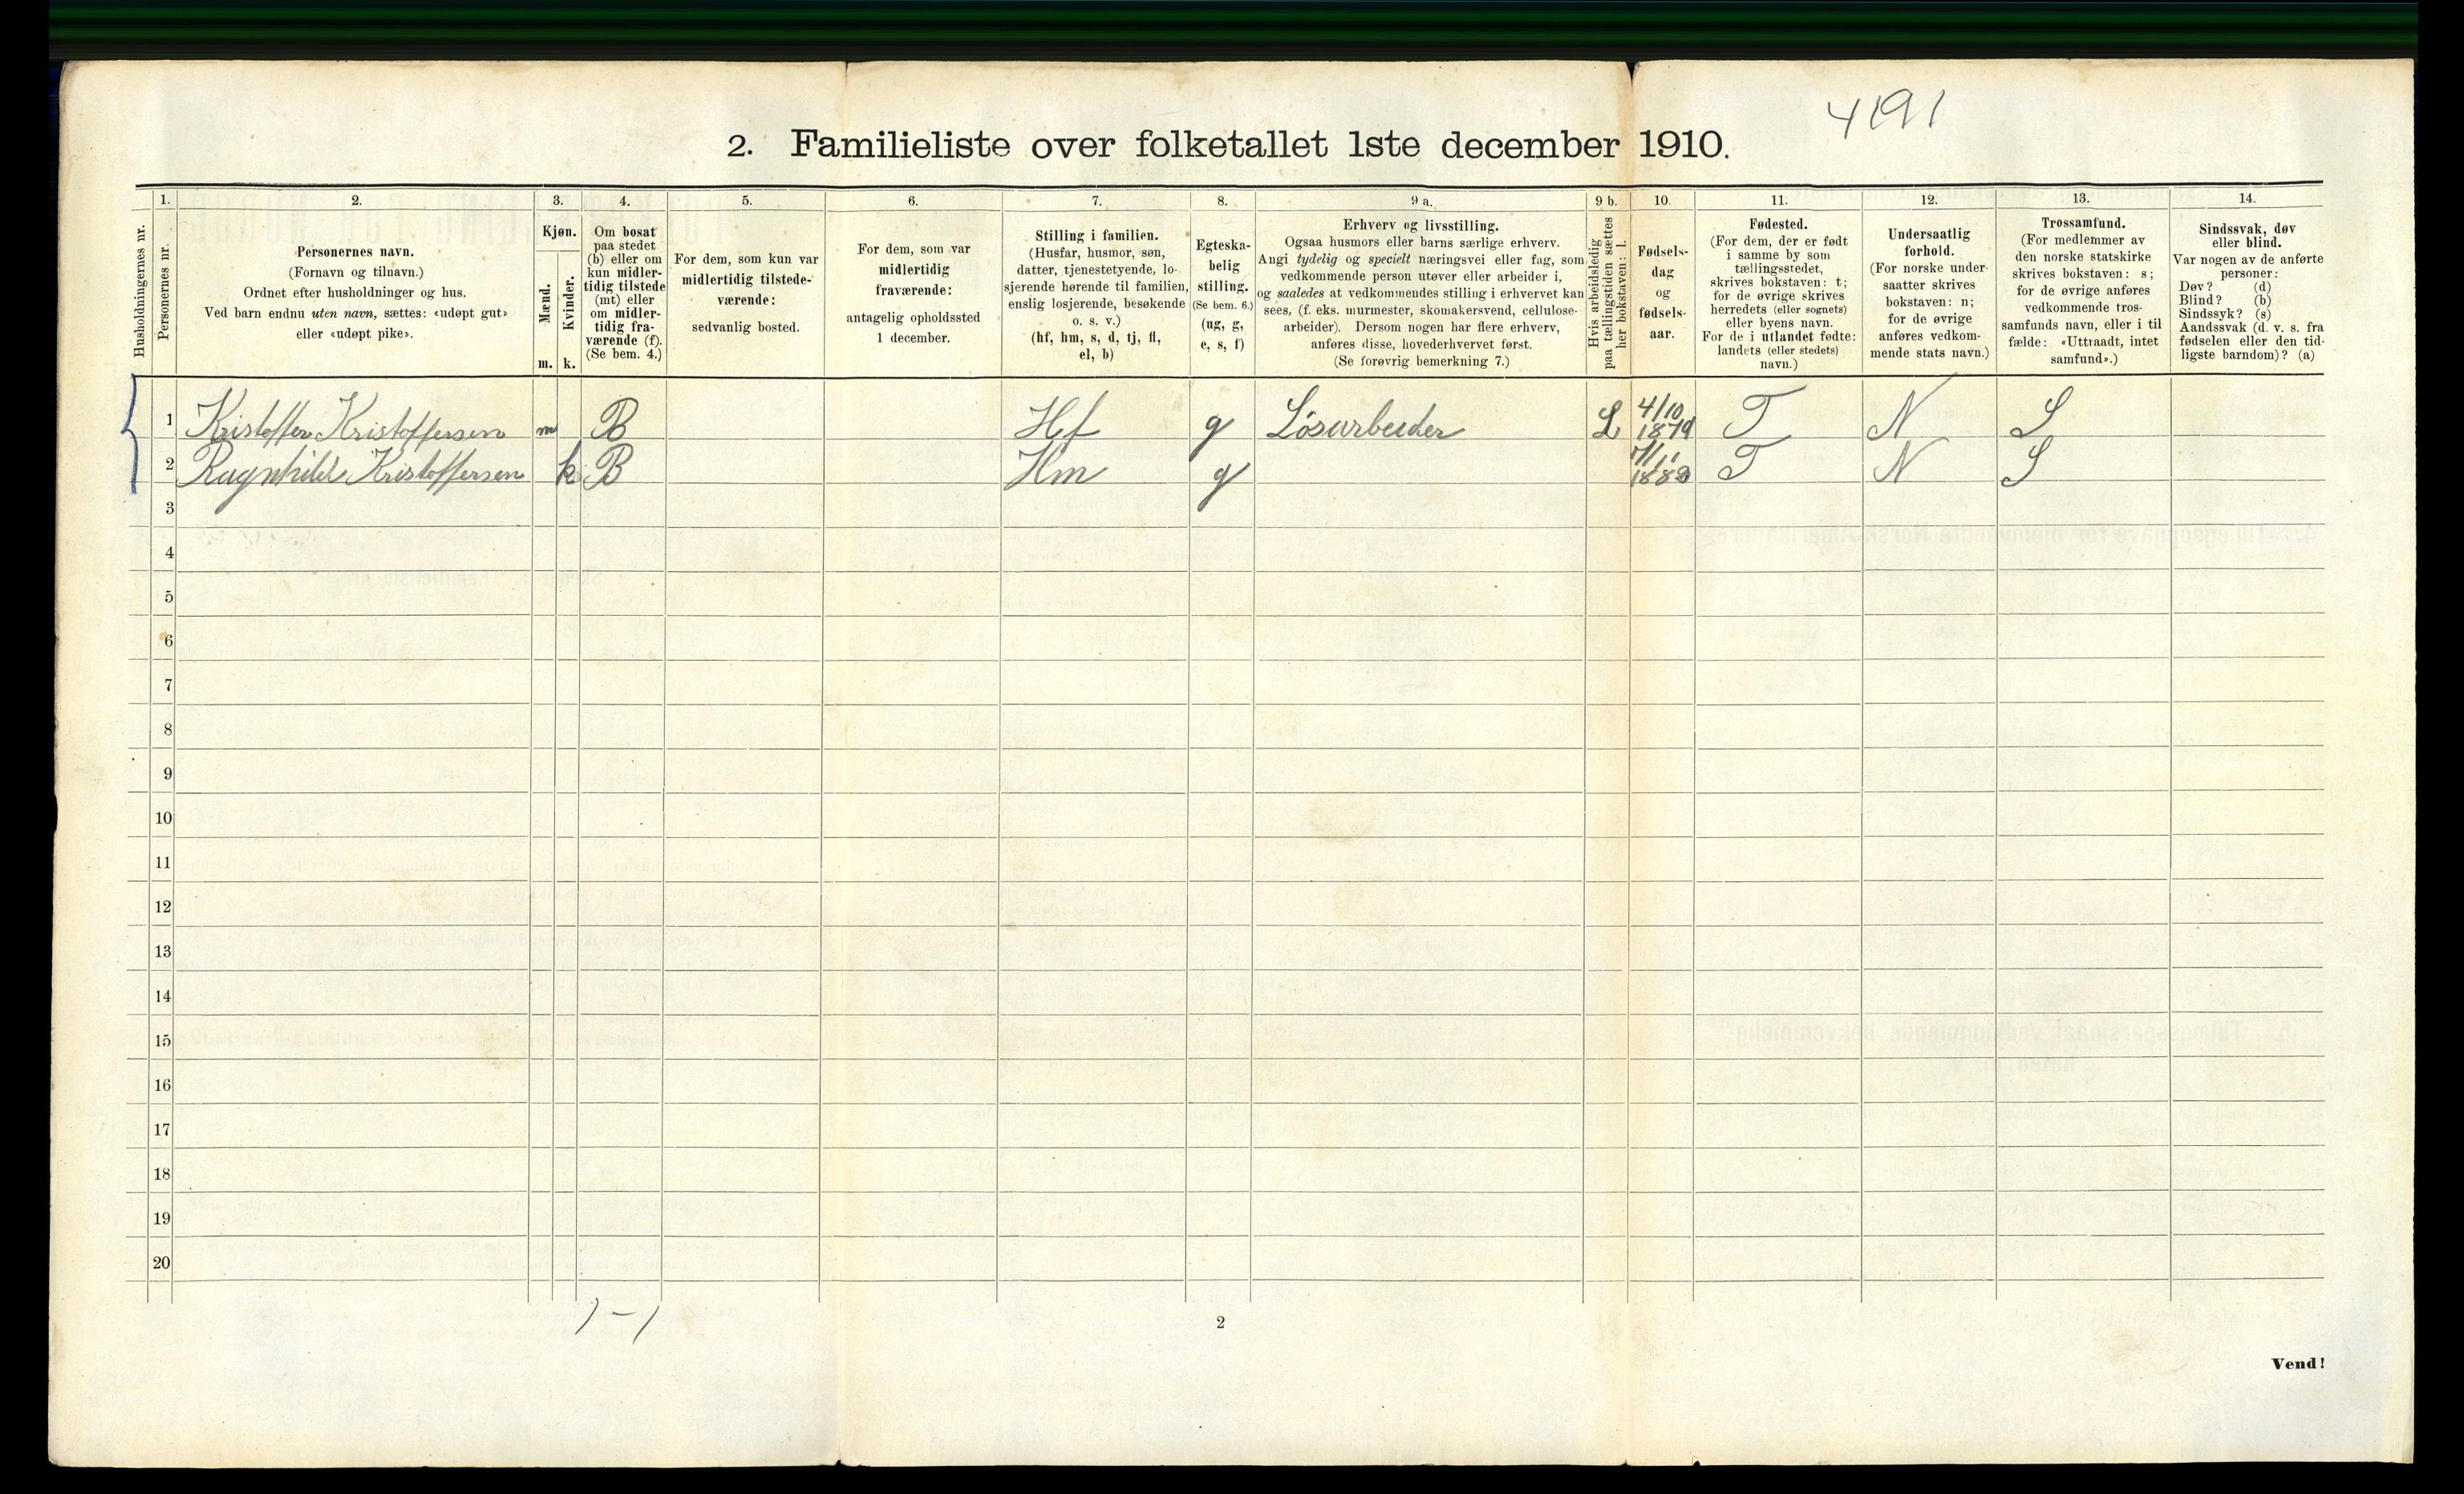 4191
2. Familieliste over folketallet 1ste december 1910.
Husholdningernes nr.
1.
Personernes nr.
2.
Personernes navn.
(Fornavn og tilnavn.)
Ordnet efter husholdninger og hus.
Ved barn endnu uten navn, sættes: «udøpt gut»
eller «udøpt pike».
3.
Kjøn.
Mænd.
Kvinder.
m. k.
4.
Om bosat
paa stedet
(b) eller om
kun midler-
tidig tilstede
(mt) eller
om midler-
tidig fra-
værende (f).
(Se bem. 4.)
5.
For dem, som kun var
midlertidig tilstede-
værende:
sedvanlig bosted.
6.
For dem, som var
midlertidig
fraværende:
antagelig opholdssted
1 december.
7.
Stilling i familien.
(Husfar, husmor, søn,
datter, tjenestetyende, lo-
sjerende hørende til familien,
enslig losjerende, besøkende
o. s. v.)
(hf, hm, s, d, tj, fl,
el, b)
8.
Egteska-
belig
stilling.
(Se bem. 6.)
(ug, g,
e, s, f)
9 a.
Erhverv og livsstilling.
Ogsaa husmors eller barns særlige erhverv.
Angi tydelig og specielt næringsvei eller fag, som
vedkommende person utøver eller arbeider i,
og saaledes at vedkommendes stilling i erhvervet kan
sees, (f. eks. murmester, skomakersvend, cellulose-
arbeider). Dersom nogen har flere erhverv,
anføres disse, hovederhvervet først.
(Se forøvrig bemerkning 7.)
9 b.
Hvis arbeidsledig
paa tællingstiden sættes
her bokstaven: l.
10.
Fødsels-
dag
og
fødsels-
aar.
11.
Fødested.
(For dem, der er født
i samme by som
tællingsstedet,
skrives bokstaven: t;
for de øvrige skrives
herredets (eller sognets)
eller byens navn.
For de i utlandet fødte:
landets (eller stedets)
navn.)
12.
Undersaatlig
forhold.
(For norske under-
saatter skrives
bokstaven: n;
for de øvrige
anføres vedkom-
mende stats navn.)
13.
Trossamfund.
(For medlemmer av
den norske statskirke
skrives bokstaven: s;
for de øvrige anføres
vedkommende tros-
samfunds navn, eller i til
fælde: «Uttraadt, intet
samfund».)
14.
Sindssvak, døv
eller blind.
Var nogen av de anførte
personer:
Døv? (d)
Blind? (b)
Sindssyk? (s)
Aandssvak (d. v. s. fra
fødselen eller den tid-
ligste barndom)? (a)
1 Kristoffer Kristoffersen m B Hf g Løsarbeider L 4/10 1879 T N S
2 Ragnhild Kristoffersen k B Hm g T N S
3
4
5
6
7
8
9
10
11
12
13
14
15
16
17
18
19
20
1-1
2
Vend!